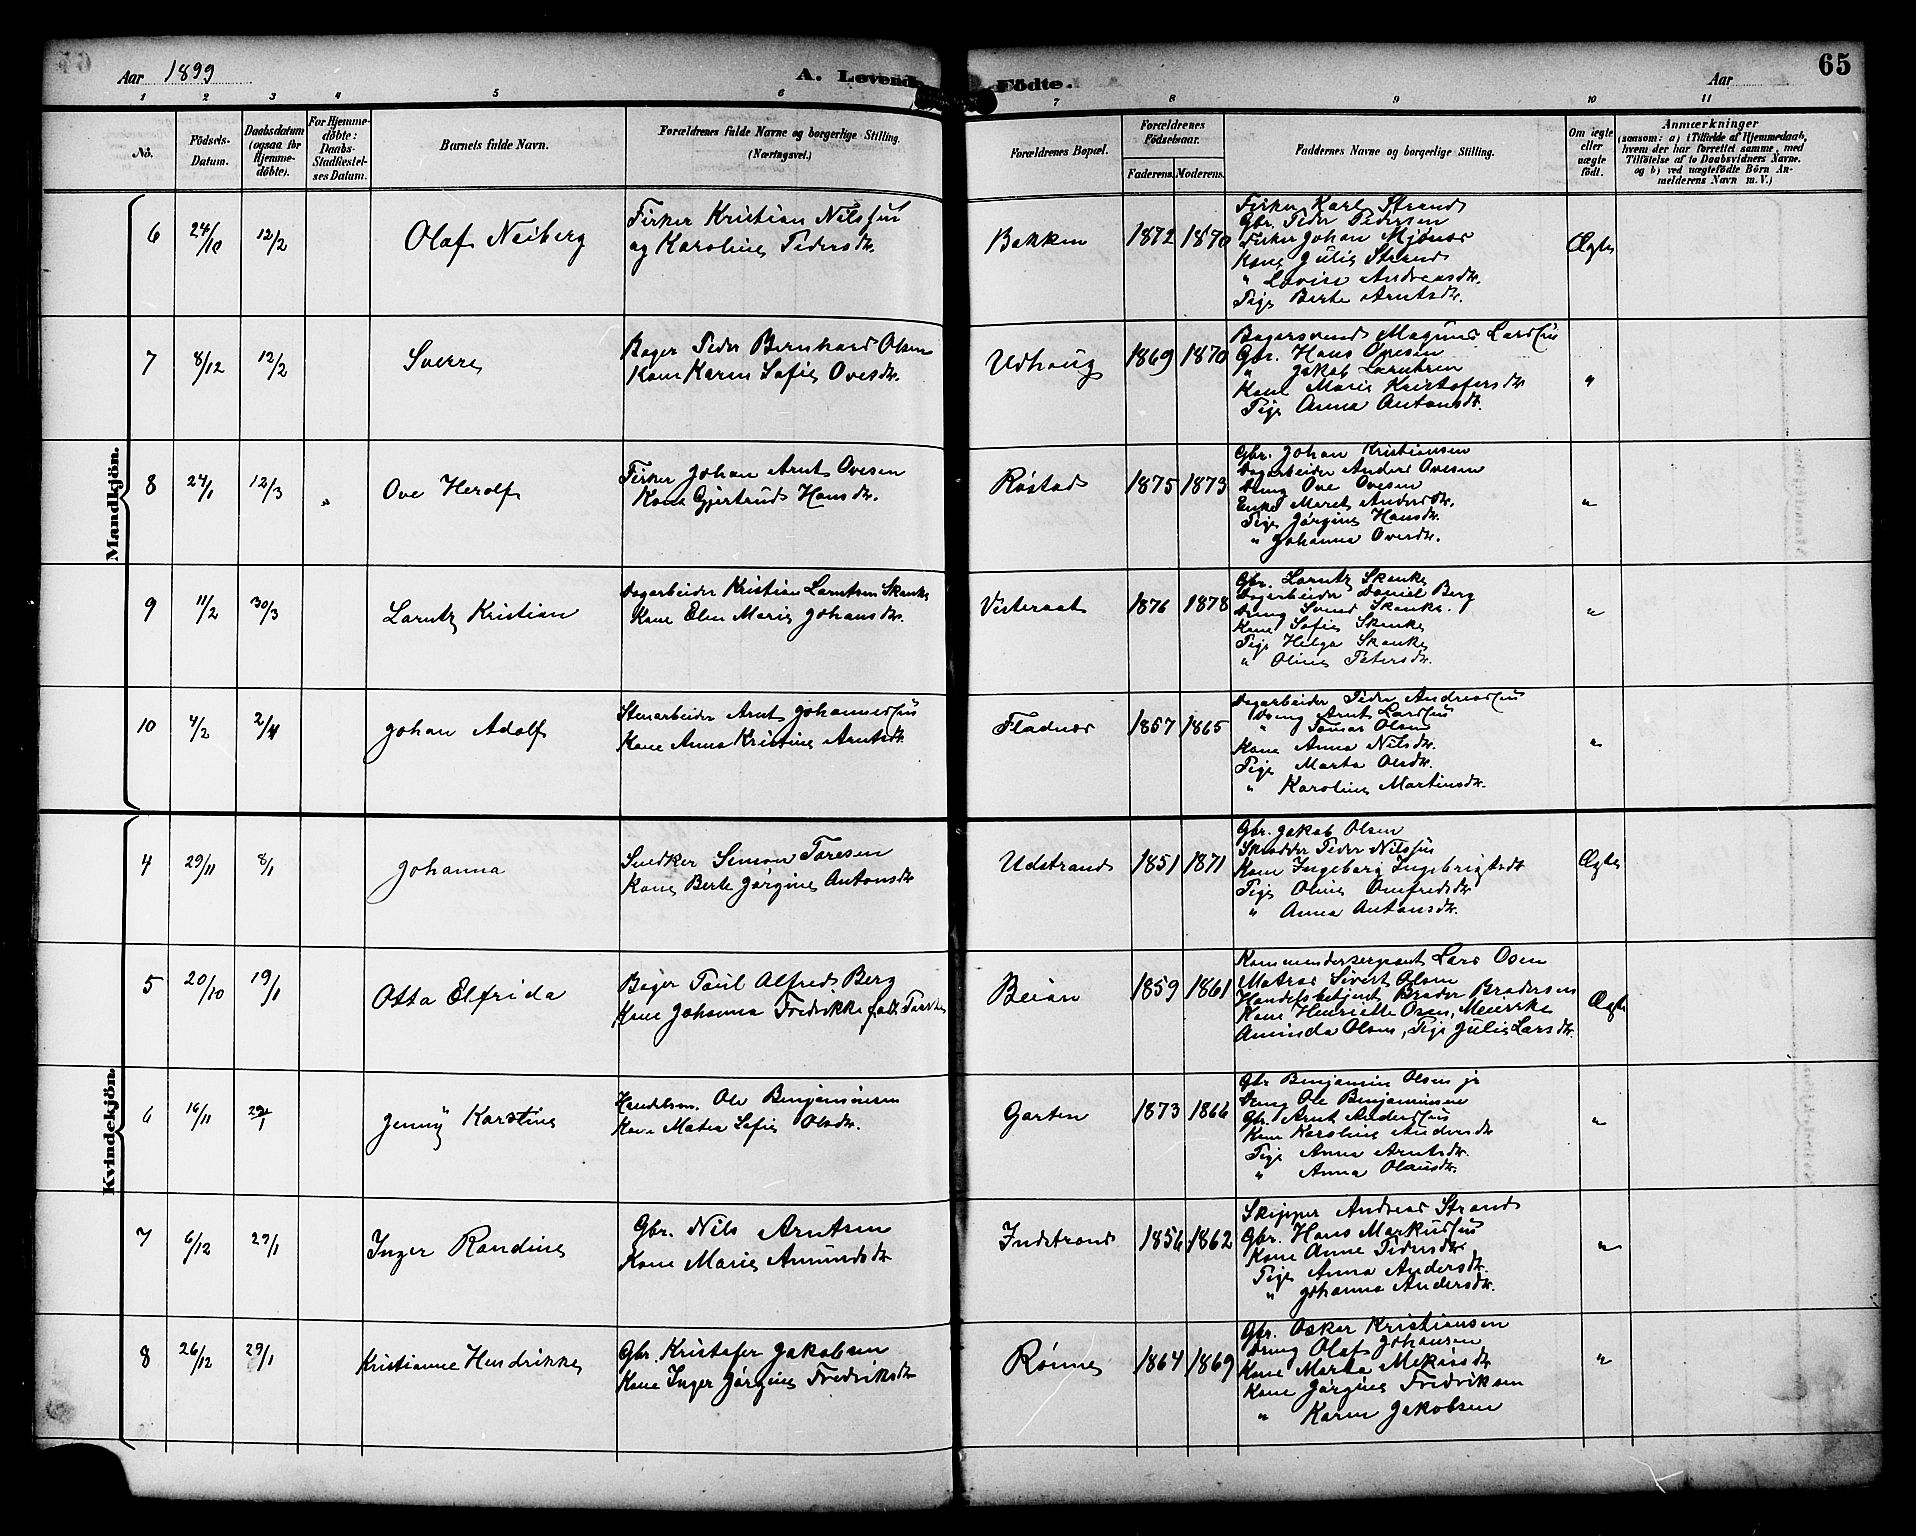 Aar 1899
A. Levende
Födte.
Aar
65
1 2 3 4 5 6 7 8 9 10 11
No.
Födsels-Datum.
Daabsdatum (ogsaa for Hjemme-döbte).
For Hjemme-döbte: Daabs-Stadfæstel-ses Datum.
Barnets fulde Navn.
Forældrenes fulde Navne og borgerlige Stilling. (Næringsvei.)
Forældrenes Bopæl.
Forældrenes Födselsaar.
Faderens. Moderens.
Faddernes Navne og borgerlige Stilling.
Om ægte eller uægte födt.
Anmærkninger
(saasom: a) i Tilfælde af Hjemmedaab, hvem der har forrettet samme, med Tilföielse af to Daabsvidners Navne. og b) ved uægtefödte Börn An-melderens Navn m. V.)
Mandkjön.
6 24/10 12/2 Olaf Neiberg
Firker Kristian Nilssen
og Karoline Pedersdtr.
Bakken 1872 1870
Firker Karl Strand
Gbr. Peder Pedersen
Firker Johan Mjönes
Kone Julie Strand
" Lovise Andreasdtr.
Pige Berte Arntsdtr.
Ægte
7 8/12 12/2 Sverre
Bager Peder Bernhard Olsen
Kone Karen Sofie Ovesdtr.
Udhaug 1869 1870
Bagersvend Magnus Larssen
Gbr. Hans Ovesen
" Jakob Larntsen
Kone Marie Kristofersdtr
Pige Anna Antonsdtr.
"
8 24/1 12/3 " Ove Herolf
Firker Johan Arnt Ovesen
Kone Gjertrud Hansdtr.
Röstad 1875 1873
Gbr. Johan Kristiansen
Dagarbeider Anders Ovesen
Dreng Ove Ovesen
Enke Maret Andersdtr.
Pige Jörgine Hansdtr.
" Johanna Ovesdtr.
"
9 11/2 30/3 Larntz Kristian
Dagarbeider Kristian Larntsen Skanke
Kone Elen Marie Johansdtr.
Visteraat 1876 1878
Gbr. Larntz Skanke
Dagarbeider Daniel Berg
Dreng Svend Skanke.
Kone Sofie Skanke
Pige Helga Skanke
" Oline Petersdtr.
"
10 4/2 2/4 Johan Adolf
Stenarbeider Arnt Johannessen
Kone Anna Kristine Arntsdtr.
Fladnes 1857 1865
Dagarbeider Peder Andreassen
Dreng Arnt Larssen
" Tomas Olsen
Kone Anna Nilsdtr.
Pige Marta Olsdtr.
" Karoline Martinsdtr.
"
Kvindekjön.
4 29/11 8/1 Johanna
Snedker Simon Toresen
Kone Berte Jörgine Antonsdtr
Udstrand 1851 1871
Gbr. Jakob Olsen
Skrædder Peder Nilssen
Kone Ingeborg Ingebrigtsdtr
Pige Oline Onefredsdtr
" Anna Antonsdtr.
Ægte
5 20/10 19/1 Otta Elfrida
Bager Paul Alfred Berg
Kone Johanna Fredrikke
Beian 1859 1861
Kommandersergeant Lars Osen
Matros Sivert Olsen
Handelsbetjent Brader Bradersen
Kone Henriette Osen, Meierske
Aminda Olsen, Pige Julie Larsdtr.
Ægte
6 16/11 29/1 Jenny Karstine
Handelsm. Ole Benjaminsen
Kone Matea Sofie Olsdtr.
Garten 1873 1866
Gbr Benjamin Olsen jr
Dreng Ole Benjaminsen
Gbr. Arnt Anderssen
Kone Karoline Andersdtr
Pige Anna Arntsdtr.
" Anna Olausdtr.
"
7 6/12 29/1 Inger Randine
Gbr. Nils Arntsen
Kone Marie Amundsdtr
Indstrand 1856 1862
Skipper Andreas Strand
Gbr. Hans Markussen
Kone Anne Pedersdtr
Pige Anna Andersdtr.
" Johanna Andersdtr.
"
8 26/12 29/1 Kristianne Hendrikke
Gbr. Kristofer Jakobsen
Kone Inger Jörgine Fredriksdtr
Rönne 1864 1869
Gbr. Oskar Kristiansen
Dreng Olaf Johansen
Kone Marta Mekalsdtr
Kone Jörgine Fredriksen
" Karen Jakobsen
"